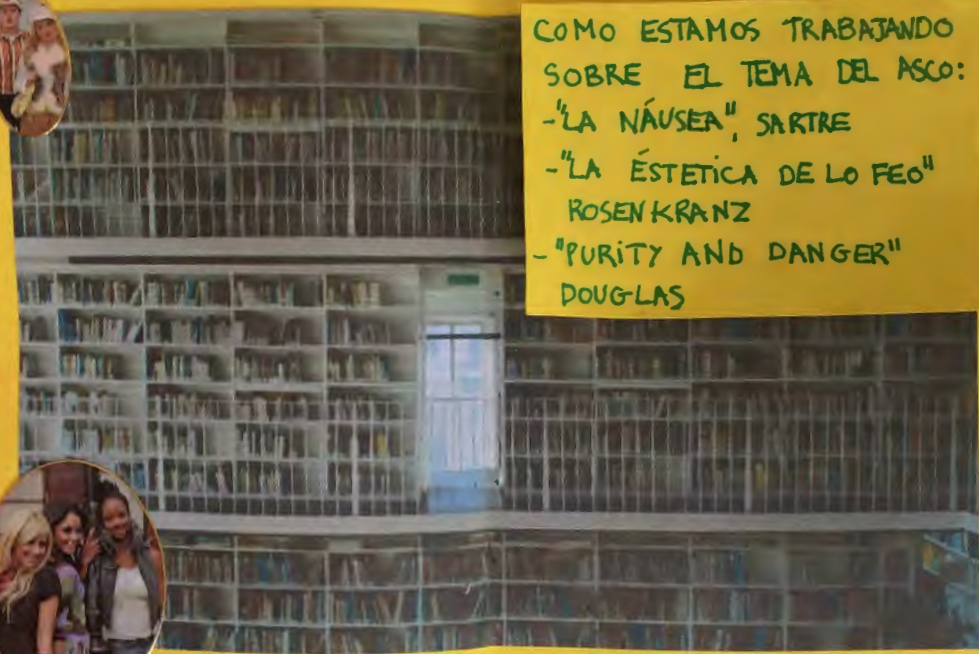 COMO ESTAMOS TRABAJANDO
SOBRE EL TEMA DEL ASCO:
-"LA NÁUSEA", SARTRE
-"LA ÉSTETICA DE LO FEO"
ROSENKRANZ
-"PURITY AND DANGER"
DOUGLAS